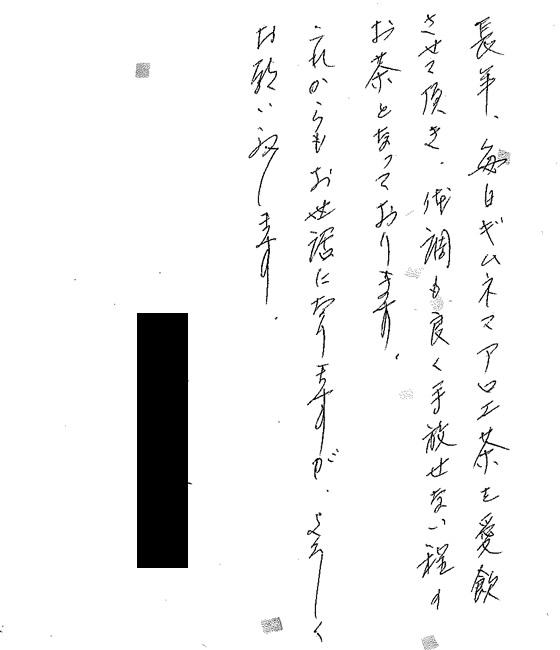 長年、毎日ギムネマアロエ茶を愛飲
させて頂き、体調も良く手放せない程の
お茶となっております。
これからもお世話になりますが、よろしく
お願い致します。